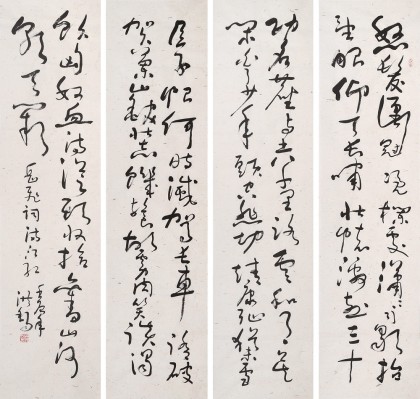 怒髮衝冠凭欄處瀟瀟雨歇抬
望眼仰天長嘯壯懷激烈三十
功名塵與土八千里路雲和月莫
閒白了少年頭空悲切靖康恥猶未雪
臣子恨何時滅駕長車踏破
賀蘭山缺壯志飢餐胡虜肉笑談渴
飲匈奴血待從頭收拾舊山河
朝天闕
岳飛詞滿江紅